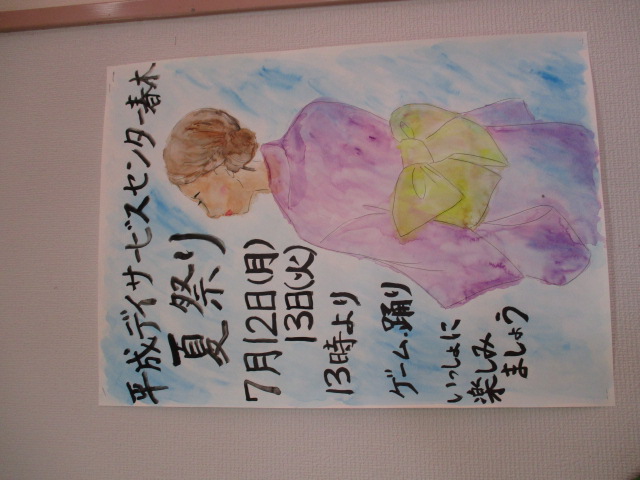 平成デイサービスセンター春木
夏祭り
7月12日(月)
13日(火)
13時より
ゲーム.踊り
いっしょに
楽しみ
ましょう